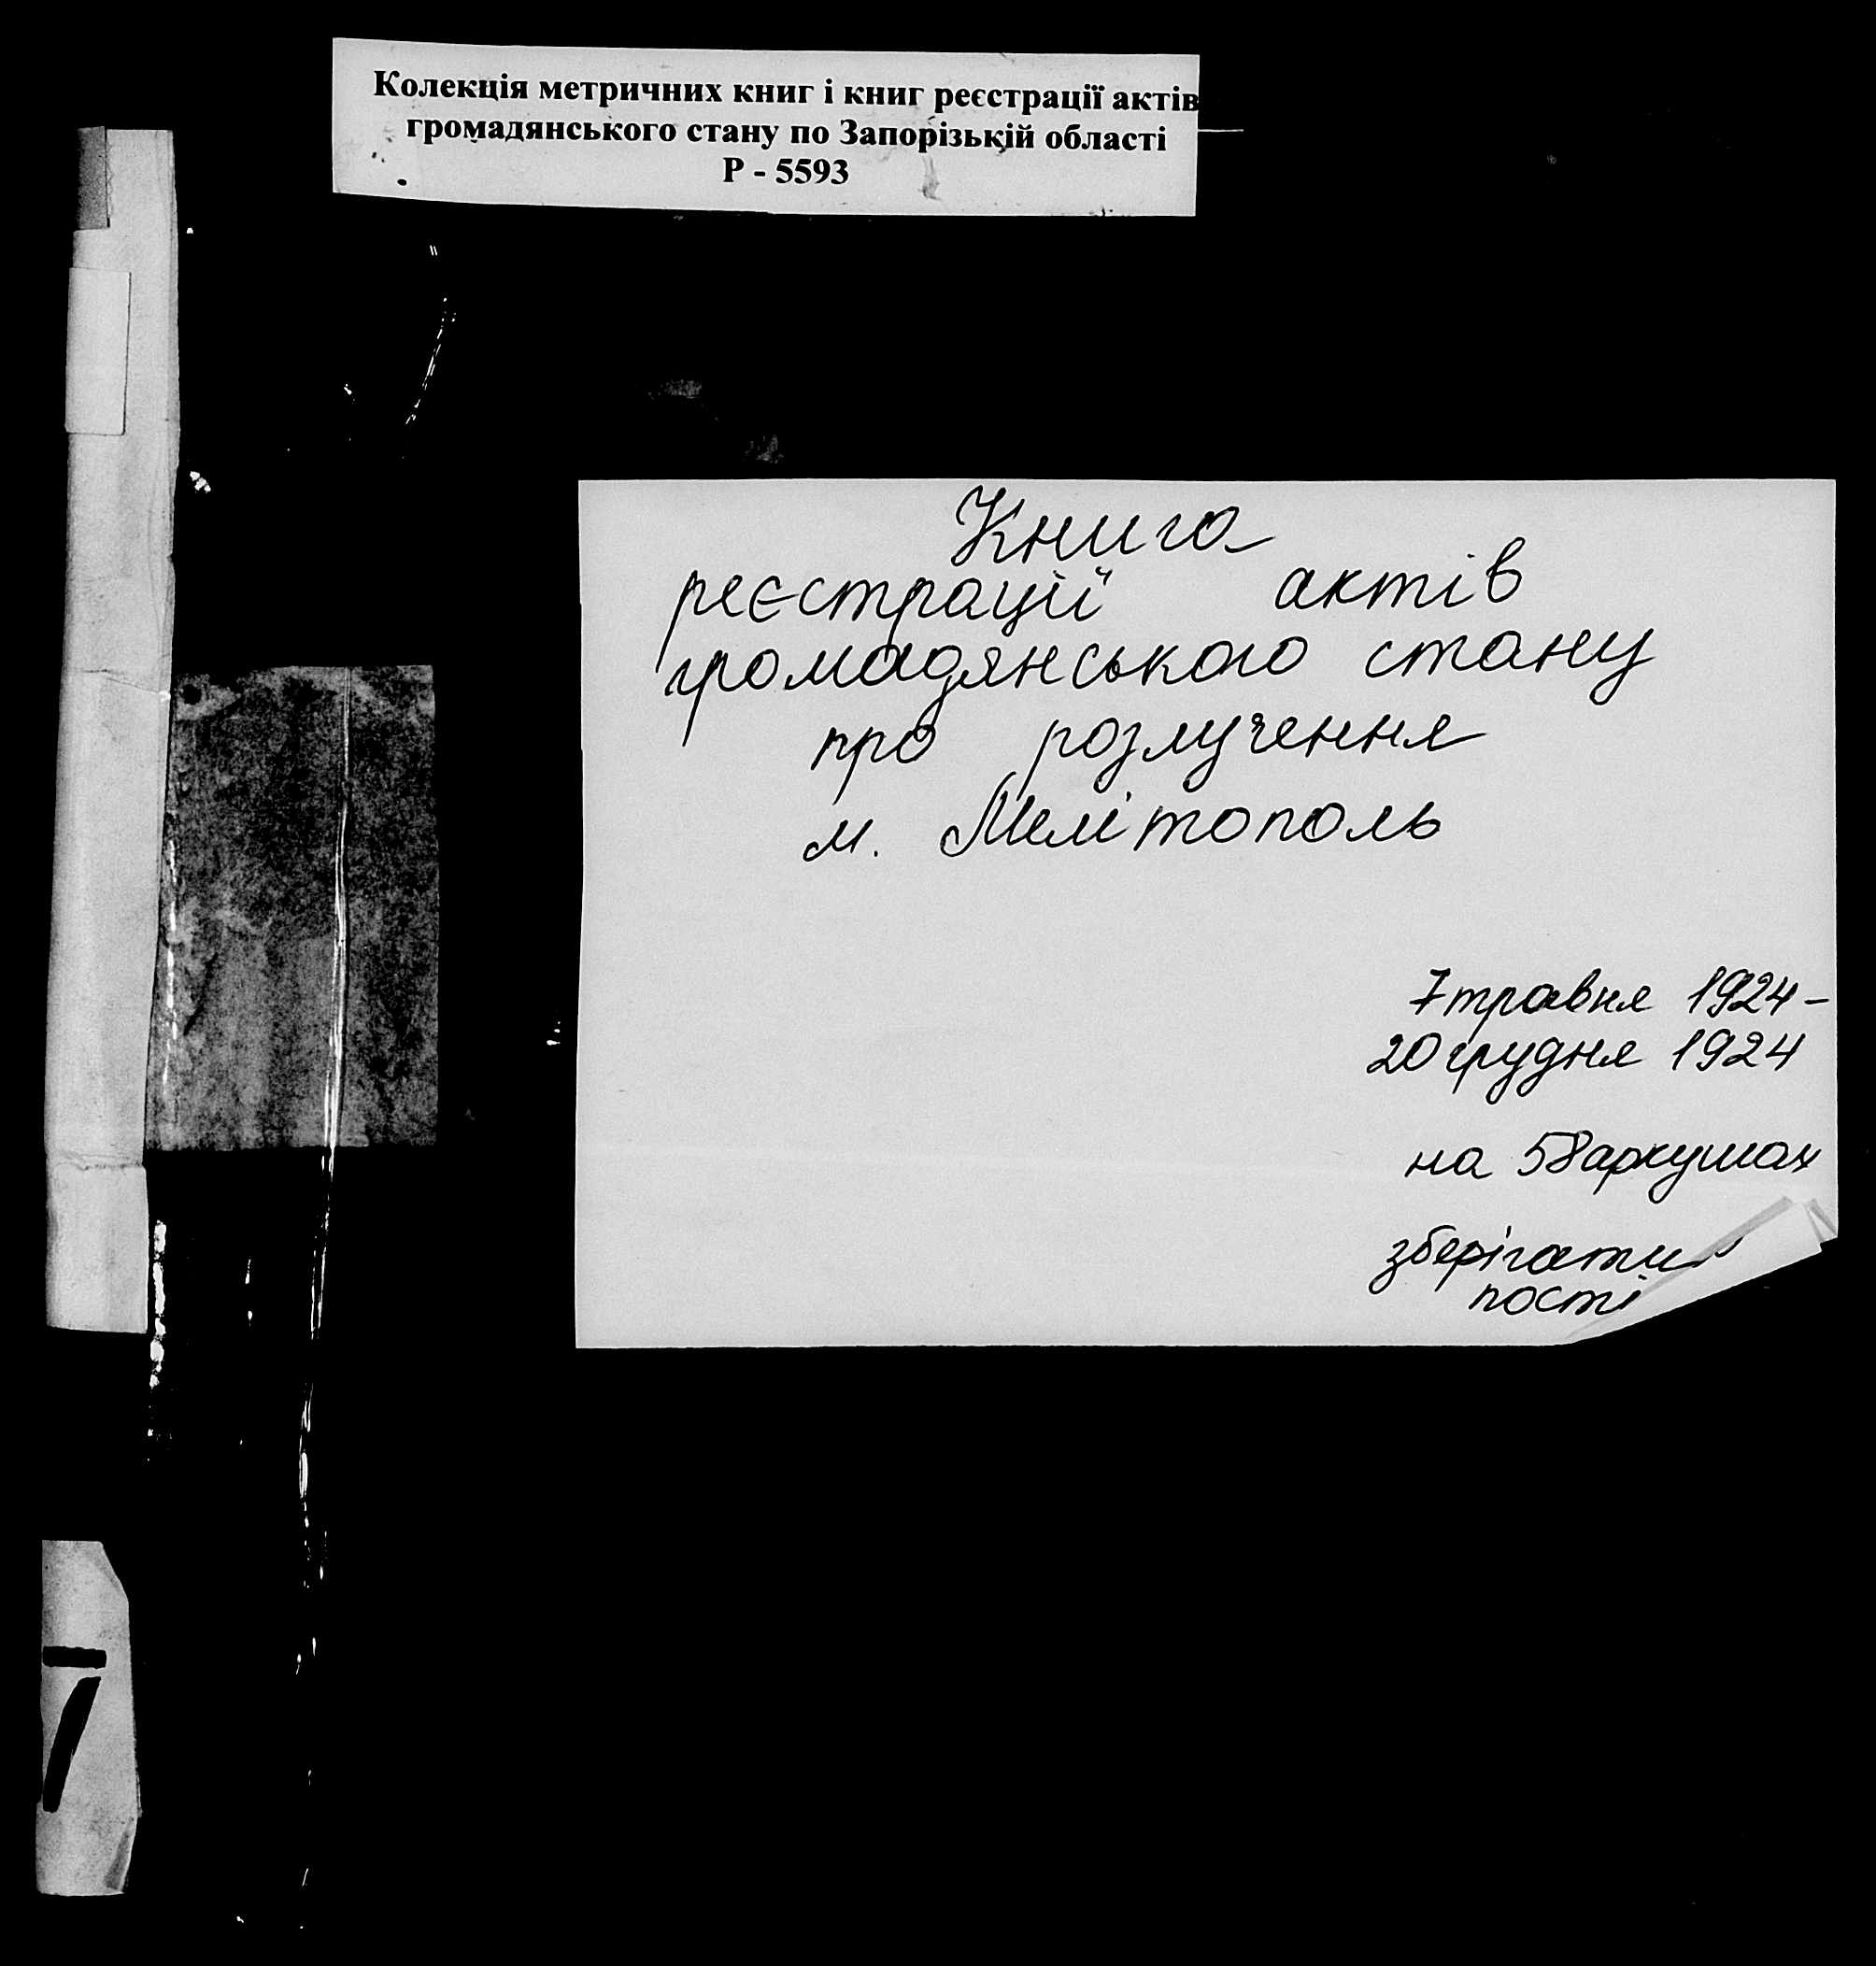 Колекція метричних книг і книг реєстрації актів
громадянського стану по Запорізькій області
Р - 5593
Книга
реєстрації актів
громадянського стану
про розлучення
м. Мелітополь
7 травня 1924 –
20 грудня 1924
на 58 аркушах
зберігати
пості